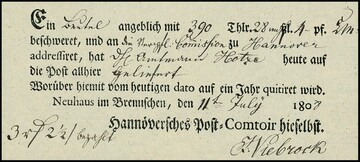 Ein Beutel angeblich mit 390 Thlr. 28 mgl. 4 pf.
beschweret, und an die Commission zu Hannover
addressiret, hat Hr Amtmann Hotze heute auf
die Post allhier geliefert
Worüber hiemit vom heutigen dato auf ein Jahr quitiret wird.
Neuhaus im Bremischen, den 11t July 180
Hannöversches Post-Comtoir hieselbst.
bezahlt
Viebrock